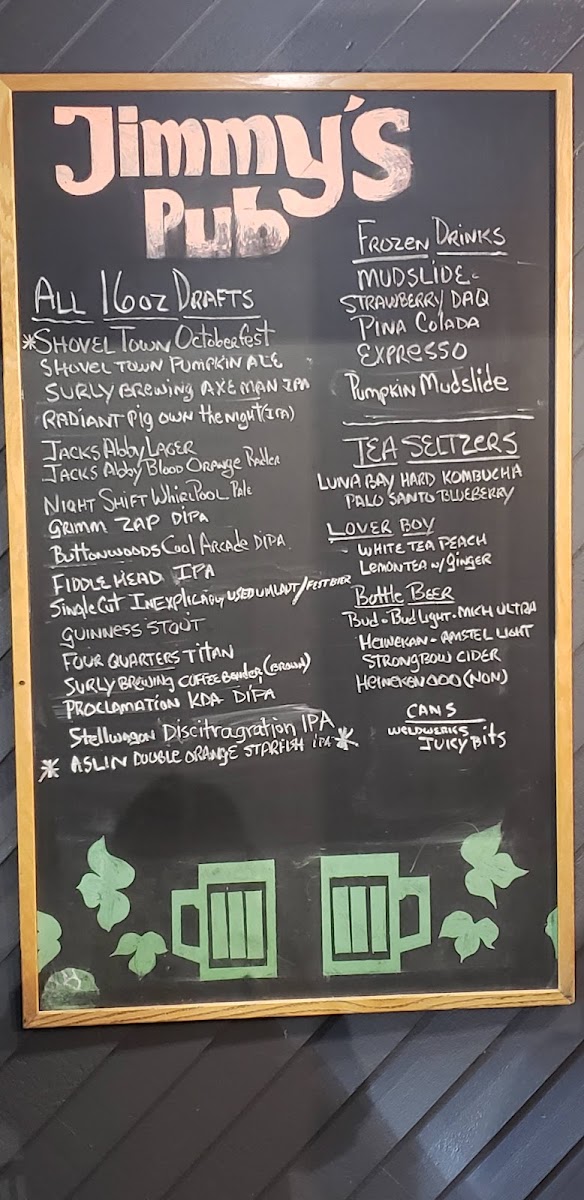 Jimmy's
Pub
ALL 16oz DRAFTS
*SHOVEL TOWN Octoberfest
SHOVEL TOWN PUMPKIN ALE
SURLY BREWING AXE MAN IPA
RADIANT Pig OWN the Night (IPA)
JACKS Abby LAGER
JACKS Abby Blood Orange Radler
NIGHT SHIFT WHIRLPOOL Pale
GRIMM ZAP DIPA
BUTTONWOODS Cool Arcade DIPA
FIDDLEHEAD IPA
SingleCut INEXPLICABLY USED UMLAUT/FESTBIER
GUINNESS STOUT
FOUR QUARTERS TITAN
SURLY BREWING COFFEE Bender (BROWN)
PROCLAMATION KDA DIPA
Stellwagon Discitragration IPA
* ASLIN DOUBLE ORANGE STARFISH IPA *
FROZEN DRINKS
MUDSLIDE-
STRAWBERRY DAQ
PINA COLADA
EXPRESSO
PUMPKIN Mudslide
TEA SELTZERS
LUNA BAY HARD KOMBUCHA
PALO SANTO BLUEBERRY
LOVER BOY
- WHITE TEA PEACH
LEMON TEA w/ GINGER
Bottle BEER
Bud - Bud light - MICH ULTRA
HEINEKAN - AMSTEL LIGHT
STRONGBOW CIDER
HEINEKEN 000 (NON)
CANS
WELDWERKS
JUICY BITS